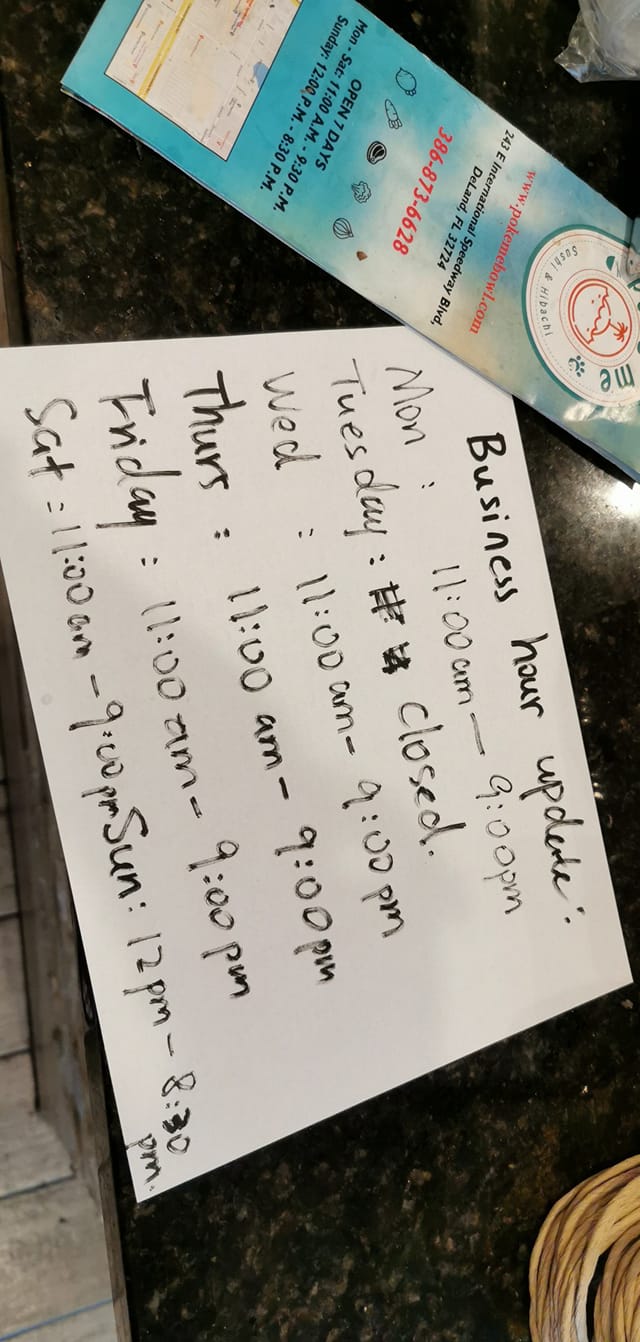 Business hour update:
Mon : 11:00 am — 9:00pm
Tuesday : closed.
Wed : 11:00 am - 9:00 pm
Thurs : 11:00 am - 9:00pm
Friday : 11:00 am - 9:00 pm
Sat : 11:00 am - 9:00pm Sun: 12 pm - 8:30 pm.
me
Sushi & Hibachi
www.pokemebowl.com
243 E International Speedway Blvd,
DeLand, FL 32724
386-873-6628
OPEN 7 DAYS
Mon - Sat: 11:00 A.M. - 9:30 P.M.
Sunday: 12:00 P.M. - 8:30 P.M.